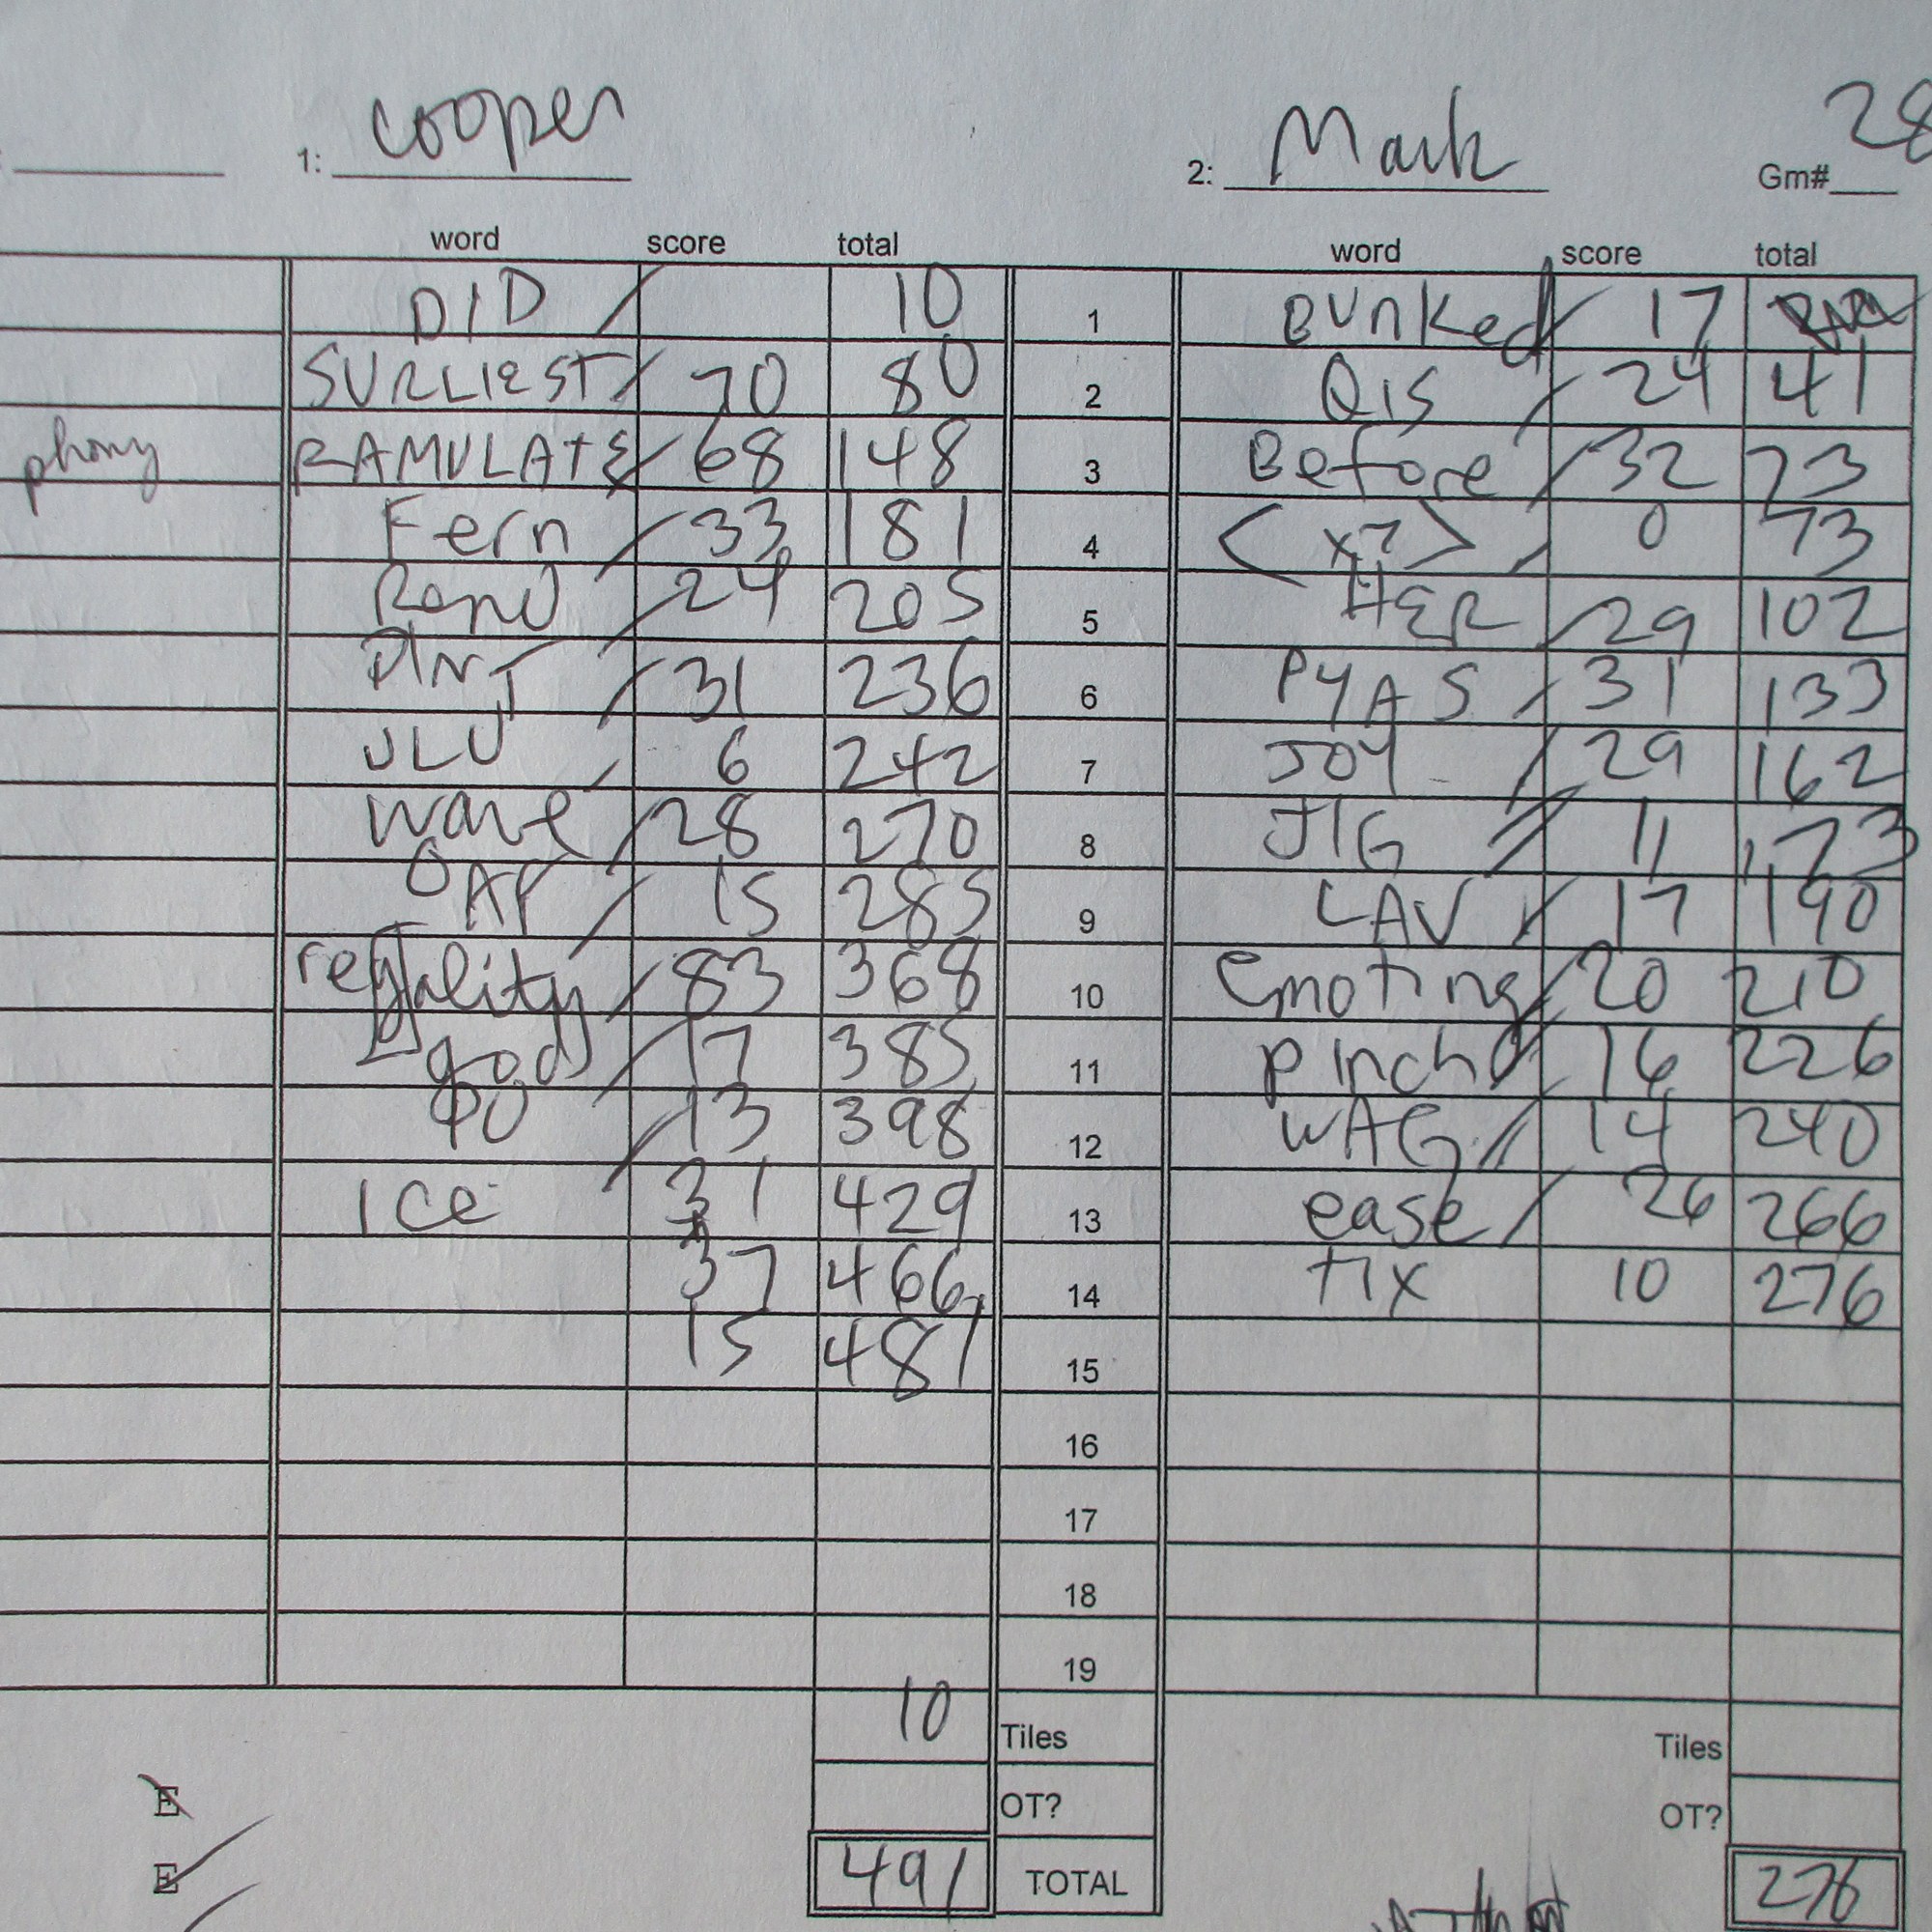 1: Cooper 2: Mark Gm# 28
word score total word score total
DID 10 1 Bunked 17
SURLIEST 70 80 2 QIS 24 41
phony RAMULATE 68 148 3 Before 32 73
Fern 33 181 4 <x7> 0 73
24 205 5 HER 29 102
31 236 6 PYAS 31 133
ULU 6 242 7 JOY 29 162
wave 28 270 8 JIG 11 173
OAP 15 285 9 LAV 17 190
regality 83 368 10 emoting 20 210
god 17 385 11 pinch 16 226
13 398 12 WAG 14 240
ice 31 429 13 ease 26 266
37 466 14 tix 10 276
15 481 15
16
17
18
19
10 Tiles Tiles
OT? OT?
491 TOTAL 276
E
E